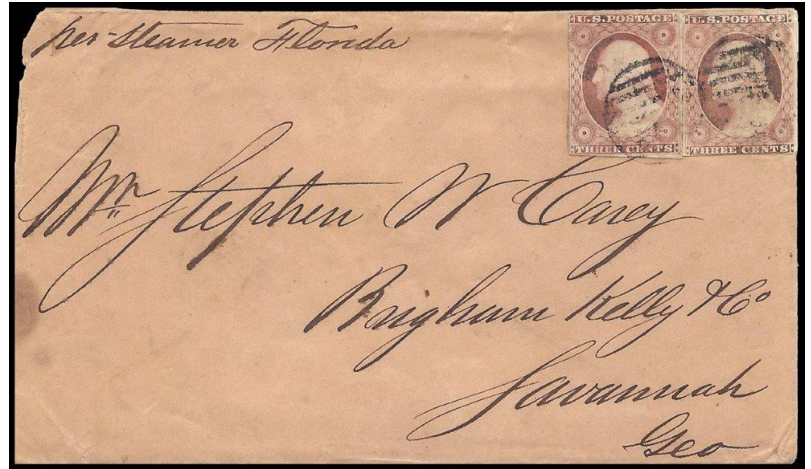 per steamer Florida
U.S. POSTAGE U.S. POSTAGE
THREE CENTS THREE CENTS
Mr. Stephen W Carey
Brigham Kelly & Co
Savannah
Geo